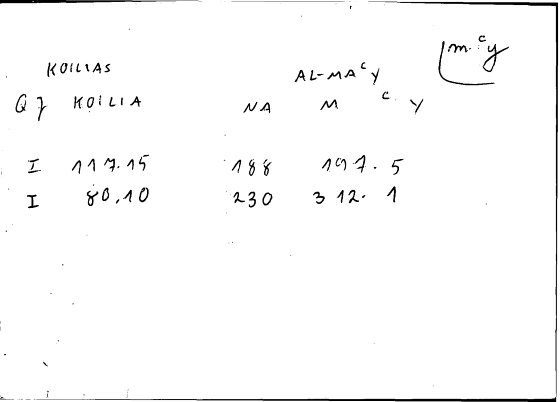 mᶜy
KOILIAS AL-MAᶜY
Qf KOILIA NA M ᶜ Y
I 117.15 188 197. 5
I 80.10 230 312. 1